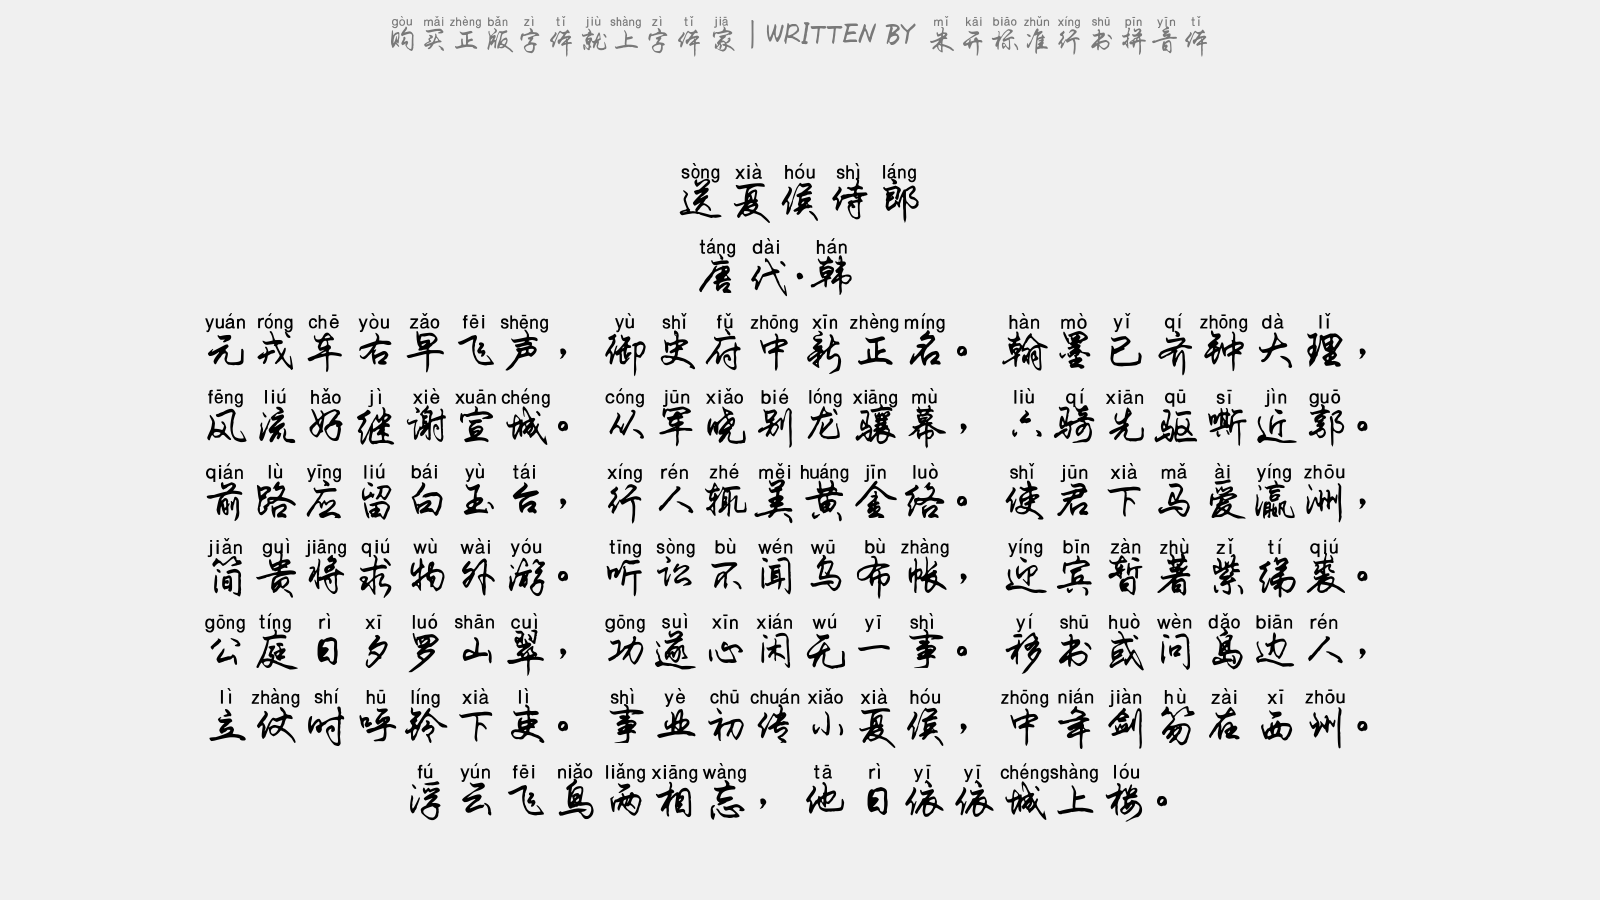 gòu mǎi zhèng bǎn zì tǐ jiù shàng zì tǐ jiā mǐ kāi biāo zhǔn xíng shū pīn yīn tǐ
购买正版字体就上字体家 | WRITTEN BY 米开标准行书拼音体
sòng xià hóu shì láng
送夏侯侍郎
táng dài hán
唐代·韩
yuán róng chē yòu zǎo fēi shēng yù shǐ fǔ zhōng xīn zhèng míng hàn mò yǐ qí zhōng dà lǐ
元戎车右早飞声，御史府中新正名。翰墨已齐钟大理，
fēng liú hǎo jì xiè xuān chéng cóng jūn xiǎo bié lóng xiāng mù liù qí xiān qū sī jìn guō
风流好继谢宣城。从军晓别龙骧幕，六骑先驱嘶近郭。
qián lù yīng liú bái yù tái xíng rén zhé měi huáng jīn luò shǐ jūn xià mǎ ài yíng zhōu
前路应留白玉台，行人辄美黄金络。使君下马爱瀛洲，
jiǎn guì jiāng qiú wù wài yóu tīng sòng bù wén wū bù zhàng yíng bīn zàn zhù zǐ tí qiú
简贵将求物外游。听讼不闻乌布帐，迎宾暂著紫绨裘。
gōng tíng rì xī luó shān cuì gōng suì xīn xián wú yī shì yí shū huò wèn dǎo biān rén
公庭日夕罗山翠，功遂心闲无一事。移书或问岛边人，
lì zhàng shí hū líng xià lì shì yè chū chuán xiǎo xià hóu zhōng nián jiàn hù zài xī zhōu
立仗时呼铃下吏。事业初传小夏侯，中年剑笏在西州。
fú yún fēi niǎo liǎng xiāng wàng tā rì yī yī chéng shàng lóu
浮云飞鸟两相忘，他日依依城上楼。